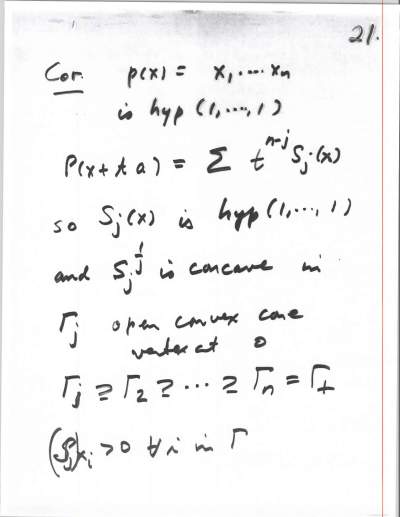 21.
Cor. p(x) = x₁ .... xₙ
is hyp (1,...,1)
P(x+ta) = Σ tⁿ⁻ʲ Sⱼ(x)
so Sⱼ(x) is hyp (1,...,1)
and Sⱼ^(1/j) is concave in
Γⱼ open convex cone
vertex at 0
Γⱼ ⊇ Γ₂ ⊇ ... ⊇ Γₙ = Γ₊
(Sⱼ)xᵢ > 0 ∀ i in Γ